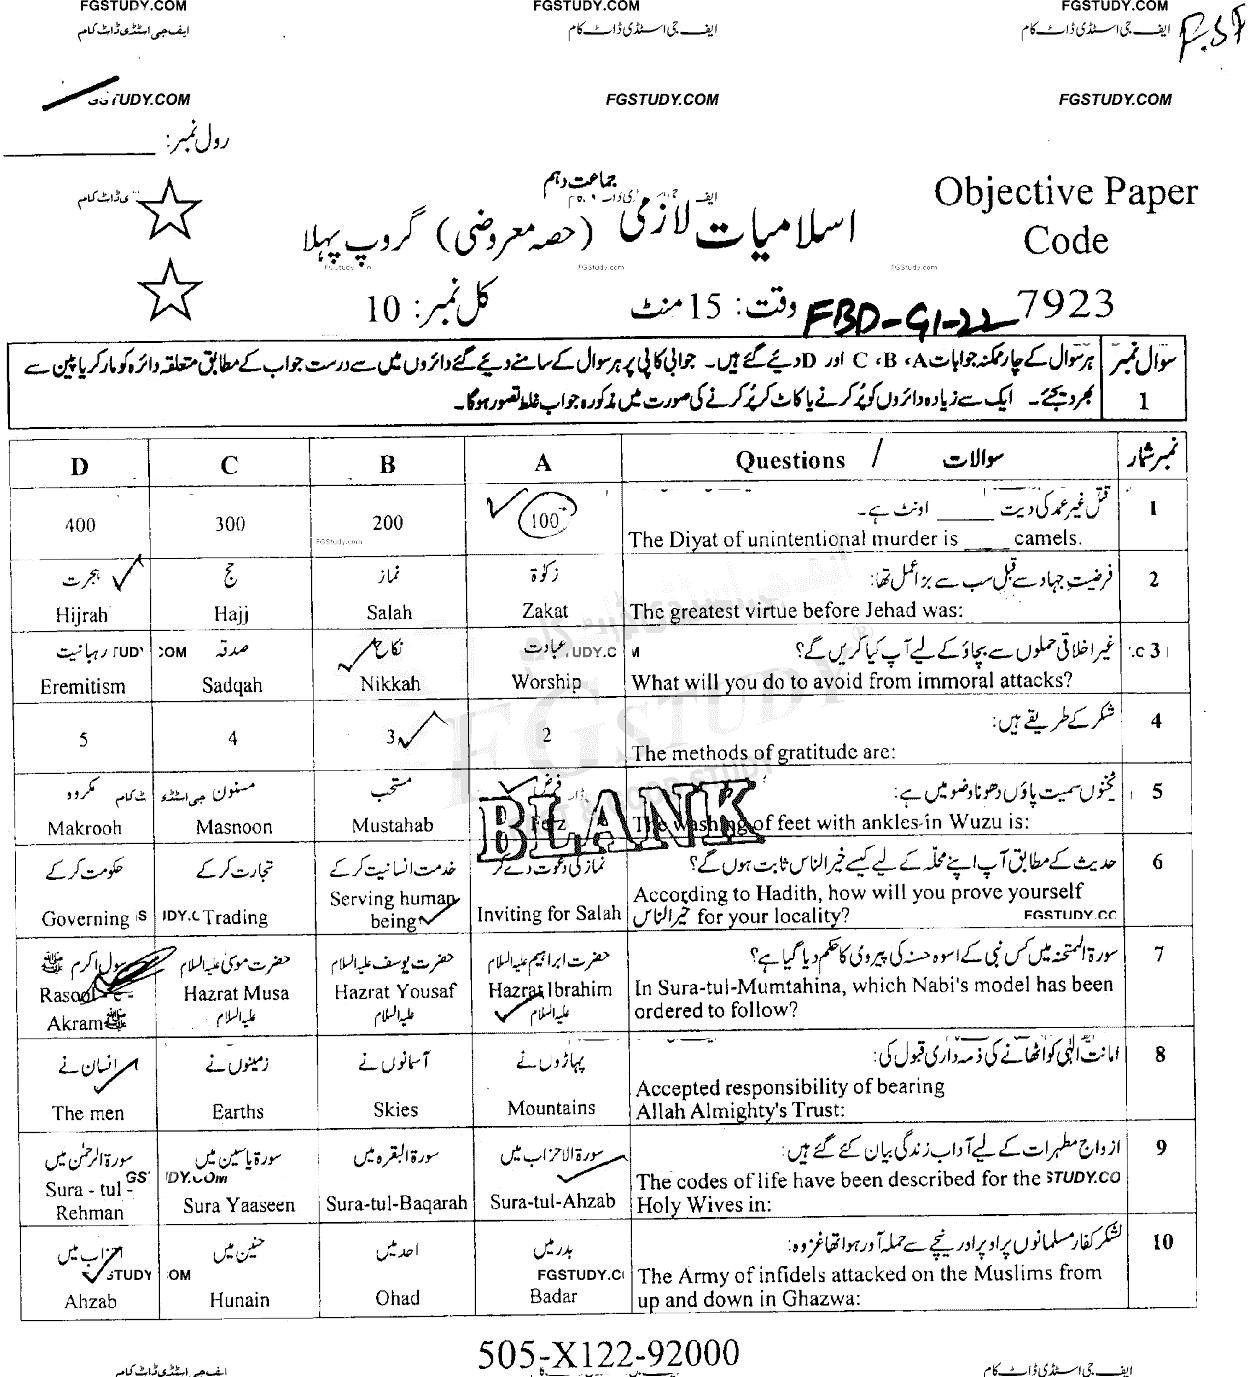 FGSTUDY.COM FGSTUDY.COM FGSTUDY.COM
ایف جی اسٹڈی ڈاٹ کام ایف جی اسٹڈی ڈاٹ کام ایف جی اسٹڈی ڈاٹ کام
FGSTUDY.COM FGSTUDY.COM FGSTUDY.COM
رول نمبر: ________
جماعت دہم
Objective Paper
اسلامیات لازمی (حصہ معروضی) گروپ پہلا
Code
FGStudy.com FGStudy.com FGStudy.com
7923
وقت: 15 منٹ
کل نمبر: 10
FBD-G1-22
سوال نمبر 1
ہر سوال کے چار ممکنہ جوابات A، B، C اور D دیئے گئے ہیں۔ جوابی کاپی پر ہر سوال کے سامنے دیئے گئے دائروں میں سے درست جواب کے مطابق متعلقہ دائرہ کو مارکر یا پین سے
بھر دیجئے۔ ایک سے زیادہ دائروں کو پُر کرنے یا کاٹ کر پُر کرنے کی صورت میں مذکورہ جواب غلط تصور ہوگا۔
نمبر شمار سوالات / Questions A B C D
1 قتل غیر عمد کی دیت ____ اونٹ ہے۔
The Diyat of unintentional murder is ____ camels.
100 200 300 400
FGStudy.com
2 فرضیتِ جہاد سے قبل سب سے بڑا عمل تھا:
The greatest virtue before Jehad was:
زکوٰۃ نماز حج ہجرت
Zakat Salah Hajj Hijrah
3 غیر اخلاقی حملوں سے بچاؤ کے لیے آپ کیا کریں گے؟
What will you do to avoid from immoral attacks?
عبادت نکاح صدقہ رہبانیت
Worship Nikkah Sadqah Eremitism
4 شکر کے طریقے ہیں:
The methods of gratitude are:
2 3 4 5
5 ٹخنوں سمیت پاؤں دھونا وضو میں ہے:
The washing of feet with ankles in Wuzu is:
فرض مستحب مسنون مکروہ
Farz Mustahab Masnoon Makrooh
BLANK
6 حدیث کے مطابق آپ اپنے محلّہ کے لیے کیسے خیر الناس ثابت ہوں گے؟
According to Hadith, how will you prove yourself
خیر الناس for your locality? FGSTUDY.CC
نماز کی دعوت دے کر خدمت انسانیت کر کے تجارت کر کے حکومت کر کے
Inviting for Salah Serving human being Trading Governing
7 سورۃ الممتحنہ میں کس نبی کے اسوہ حسنہ کی پیروی کا حکم دیا گیا ہے؟
In Sura-tul-Mumtahina, which Nabi's model has been
ordered to follow?
حضرت ابراہیم علیہ السلام حضرت یوسف علیہ السلام حضرت موسیٰ علیہ السلام رسول اکرم ﷺ
Hazrat Ibrahim علیہ السلام Hazrat Yousaf علیہ السلام Hazrat Musa علیہ السلام Rasool-e-Akram ﷺ
8 امانت الٰہی کو اٹھانے کی ذمہ داری قبول کی:
Accepted responsibility of bearing
Allah Almighty's Trust:
پہاڑوں نے آسمانوں نے زمینوں نے انسان نے
Mountains Skies Earths The men
9 ازواج مطہرات کے لیے آداب زندگی بیان کئے گئے ہیں:
The codes of life have been described for the STUDY.CO
Holy Wives in:
سورۃ الاحزاب میں سورۃ البقرہ میں سورۃ یاسین میں سورۃ الرحمٰن میں
Sura-tul-Ahzab Sura-tul-Baqarah Sura Yaaseen Sura - tul - Rehman
10 لشکر کفار مسلمانوں پر اوپر اور نیچے سے حملہ آور ہوا تھا غزوہ:
The Army of infidels attacked on the Muslims from
up and down in Ghazwa:
بدر میں احد میں حنین میں احزاب میں
Badar Ohad Hunain Ahzab
505-X122-92000
ایف جی اسٹڈی ڈاٹ کام ایف جی اسٹڈی ڈاٹ کام